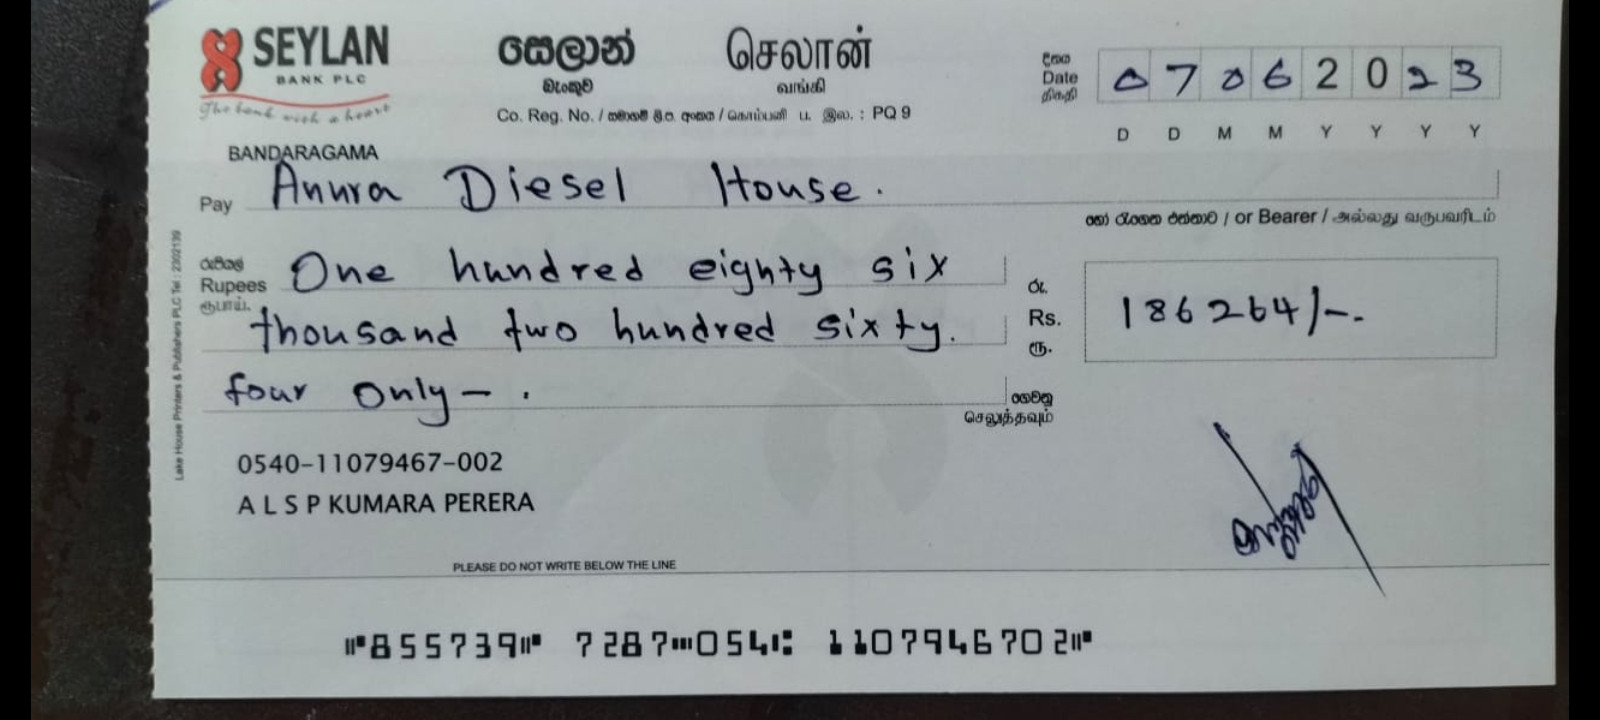 SEYLAN
BANK PLC
The bank with a heart
සෙලාන්
බැංකුව
செலான்
வங்கி
Co. Reg. No. / සමාගම් ලි.ප. අංකය / கொம்பனி ப. இல. : PQ 9
දිනය
Date
திகதி
0 7 0 6 2 0 2 3
D D M M Y Y Y Y
BANDARAGAMA
Pay Anura Diesel House.
හෝ රැගෙන එන්නාට / or Bearer / அல்லது வருபவரிடம்
රුපියල්
Rupees
ரூபாய்.
One hundred eighty six
thousand two hundred sixty.
four Only – .
රු.
Rs.
ரூ.
186264/-.
ගෙවනු
செலுத்தவும்
0540-11079467-002
A L S P KUMARA PERERA
PLEASE DO NOT WRITE BELOW THE LINE
⑈855739⑈ 7287⑉054⑆ 1107946702⑈
Lake House Printers & Publishers PLC Tel : 2302139